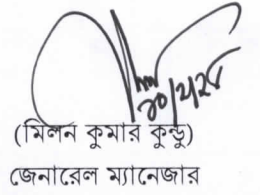 ১০/২/২৫
(মিলন কুমার কুন্ডু)
জেনারেল ম্যানেজার